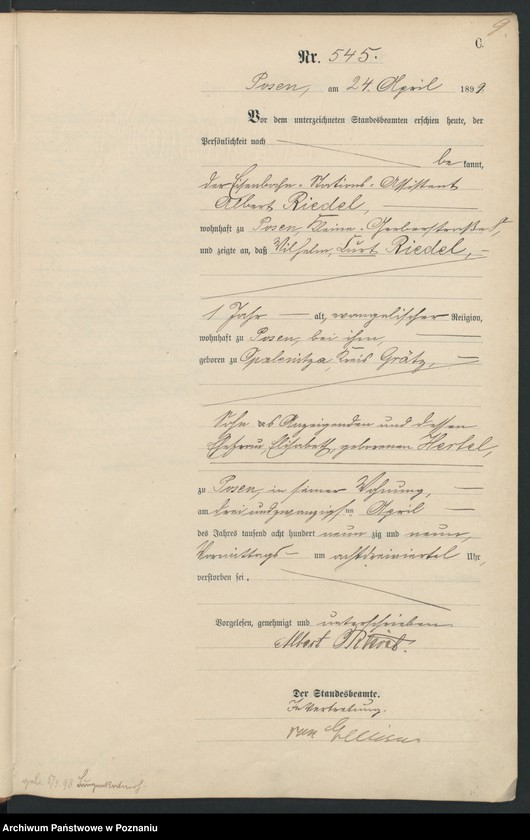 9.
C.
Nr. 545.
Posen, am 24. April 1899.
Vor dem unterzeichneten Standesbeamten erschien heute, der
Persönlichkeit nach
be kannt,
der Eisenbahn-Stations-Assistent
Albert Riedel,
wohnhaft zu Posen, Kleine-Gerberstraße
und zeigte an, daß Wilhelm, Curt Riedel,
1 Jahr alt, evangelischer Religion,
wohnhaft zu Posen, bei ihm,
geboren zu Opalenitza, Kreis Grätz,
Sohn des Anzeigenden und dessen
Ehefrau, Elisabeth, geborenen Hertel,
zu Posen, in seiner Wohnung,
am drei und zwanzigsten April
des Jahres tausend acht hundert neun zig und neun,
Vormittags um achtdreiviertel Uhr,
verstorben sei.
Vorgelesen, genehmigt und unterschrieben
Albert Riedel.
Der Standesbeamte.
In Vertretung.
van
geb. 98
Archiwum Państwowe w Poznaniu